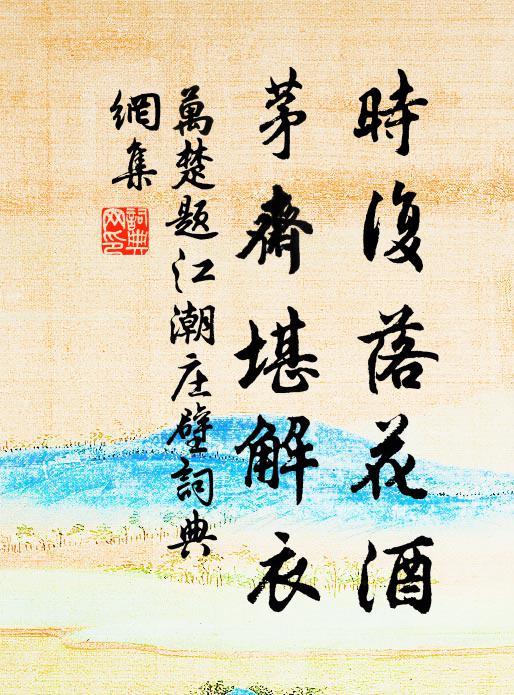 時復落花酒
茅齋堪解衣
萬楚題江潮庄壁詞典
網集
詞典
网印